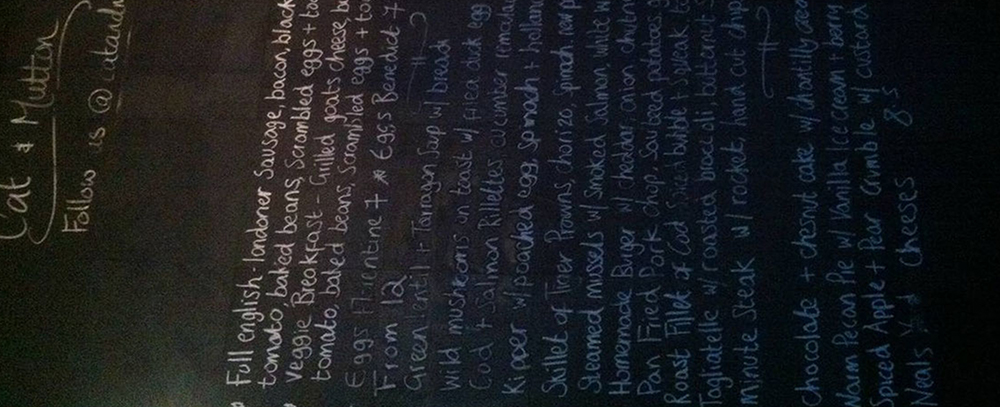 Cat & Mutton
Follow us @catandm
Full english-londoner Sausage, bacon, black
tomato, baked beans, Scrambled eggs + toa
Veggie Breakfast - Grilled goats cheese, bu
tomato, baked beans, scrambled eggs + toa
Eggs Florentine 7 Eggs Benedict 7
From 12
Green lentil + Tarragon Soup w/ bread
Wild mushrooms on toast w/ fried duck egg
Cod + Salmon Rillettes, cucumber
Kipper w/ poached egg, spinach + holland
Skillet of Tiger Prawns, chorizo, Spinach, new p
Steamed mussels w/ smoked Salmon, white w
Homemade Burger w/ cheddar, onion chutn
Pan Fried Pork chop, Sauteed potatoes,
Roast Fillet of Cod bubble + squeak
Tagliatelle w/ roasted broccoli, butternut s
minute Steak w/ rocket, hand cut chip
Chocolate + chesnut cake w/ chantilly crea
Warm Pecan Pie w/ Vanilla Ice cream + berry
Spiced Apple + Pear Crumble w/ custard
Neals Yd cheeses 8